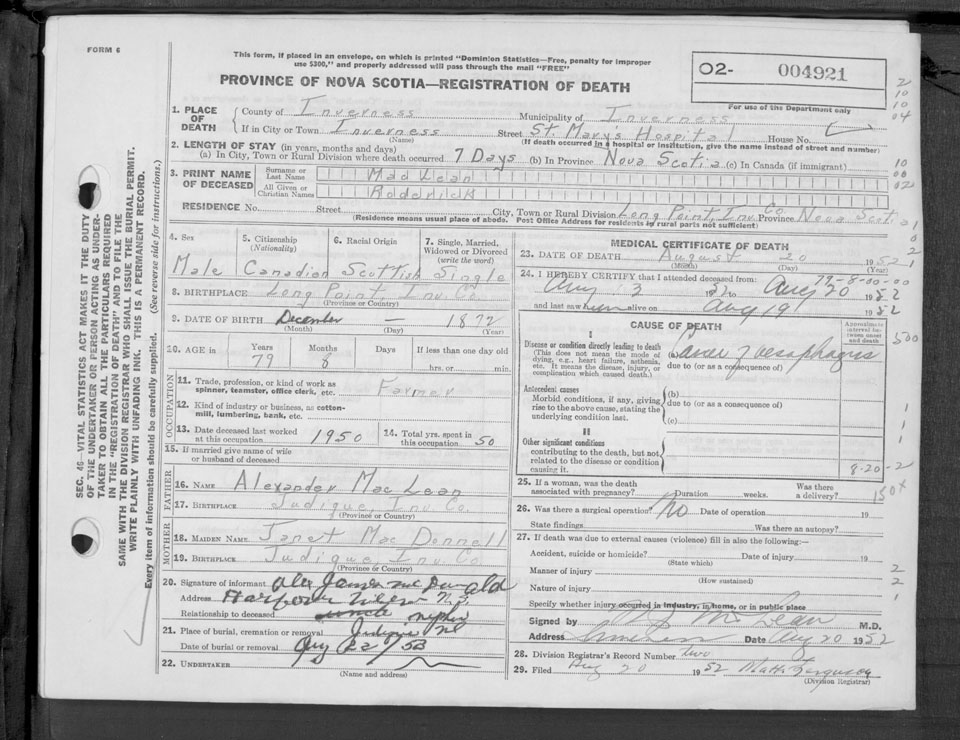 FORM 6
This form, if placed in an envelope, on which is printed "Dominion Statistics—Free, penalty for improper
use $300," and properly addressed will pass through the mail "FREE"
PROVINCE OF NOVA SCOTIA—REGISTRATION OF DEATH
O2- 004921
For use of the Department only
1. PLACE OF DEATH
County of Inverness Municipality of Inverness
If in City or Town Inverness Street St Mary's Hospital House No.
(Name) (If death occurred in a hospital or institution, give the name instead of street and number)
2. LENGTH OF STAY (in years, months and days)
(a) In City, Town or Rural Division where death occurred 7 Days (b) In Province Nova Scotia (c) In Canada (if immigrant)
3. PRINT NAME OF DECEASED
Surname or Last Name Mac Lean
All Given or Christian Names
RESIDENCE No. Street City, Town or Rural Division Long Point, Inv. Co Province Nova Scotia
(Residence means usual place of abode. Post Office Address for residents in rural parts not sufficient)
4. Sex 5. Citizenship (Nationality) 6. Racial Origin 7. Single, Married, Widowed or Divorced (write the word)
Male Canadian Scottish Single
8. BIRTHPLACE Long Point Inv. Co.
(Province or Country)
9. DATE OF BIRTH December — 1872
(Month) (Day) (Year)
10. AGE in Years Months Days If less than one day old
79 8 hrs. or min.
OCCUPATION
11. Trade, profession, or kind of work as spinner, teamster, office clerk, etc. Farmer
12. Kind of industry or business, as cotton-mill, lumbering, bank, etc.
13. Date deceased last worked at this occupation 1950 14. Total yrs. spent in this occupation 50
15. If married give name of wife or husband of deceased
FATHER
16. NAME Alexander Mac Lean
17. BIRTHPLACE Judique, Inv. Co.
(Province or Country)
MOTHER
18. MAIDEN NAME Janet Mac Donnell
19. BIRTHPLACE Judique, Inv. Co
(Province or Country)
20. Signature of informant Alex James
Address N.S.
Relationship to deceased nephew
21. Place of burial, cremation or removal Judique
Date of burial or removal Aug 22/52
22. UNDERTAKER
(Name and address)
MEDICAL CERTIFICATE OF DEATH
23. DATE OF DEATH August 20 1952
(Month) (Day) (Year)
24. I HEREBY CERTIFY that I attended deceased from:
Aug 13 1952 to Aug 20 1952
and last saw him alive on Aug 19 1952
CAUSE OF DEATH
Approximate interval between onset and death
I
Disease or condition directly leading to death
(This does not mean the mode of dying, e.g., heart failure, asthenia, etc. It means the disease, injury, or complication which caused death.)
Cancer of oesophagus
due to (or as a consequence of)
Antecedent causes
Morbid conditions, if any, giving rise to the above cause, stating the underlying condition last.
(b)
due to (or as a consequence of)
(c)
II
Other significant conditions
contributing to the death, but not related to the disease or condition causing it.
8-20-2
25. If a woman, was the death associated with pregnancy? Duration weeks. Was there a delivery?
26. Was there a surgical operation? No Date of operation 19
State findings Was there an autopsy?
27. If death was due to external causes (violence) fill in also the following:—
Accident, suicide or homicide? Date of injury 19
(State which)
Manner of injury
(How sustained)
Nature of injury
Specify whether injury occurred in industry, in home, or in public place
Signed by Mc Lean M.D.
Address Inverness Date Aug 20 1952
28. Division Registrar's Record Number two
29. Filed Aug 20 1952 Matt. Ferguson
(Division Registrar)
SEC. 46—VITAL STATISTICS ACT MAKES IT THE DUTY
OF THE UNDERTAKER OR PERSON ACTING AS UNDER-
TAKER TO OBTAIN ALL THE PARTICULARS REQUIRED
IN THE "REGISTRATION OF DEATH" AND TO FILE THE
SAME WITH THE DIVISION REGISTRAR WHO SHALL ISSUE THE BURIAL PERMIT.
WRITE PLAINLY WITH UNFADING INK. THIS IS A PERMANENT RECORD.
Every item of information should be carefully supplied. (See reverse side for instructions.)